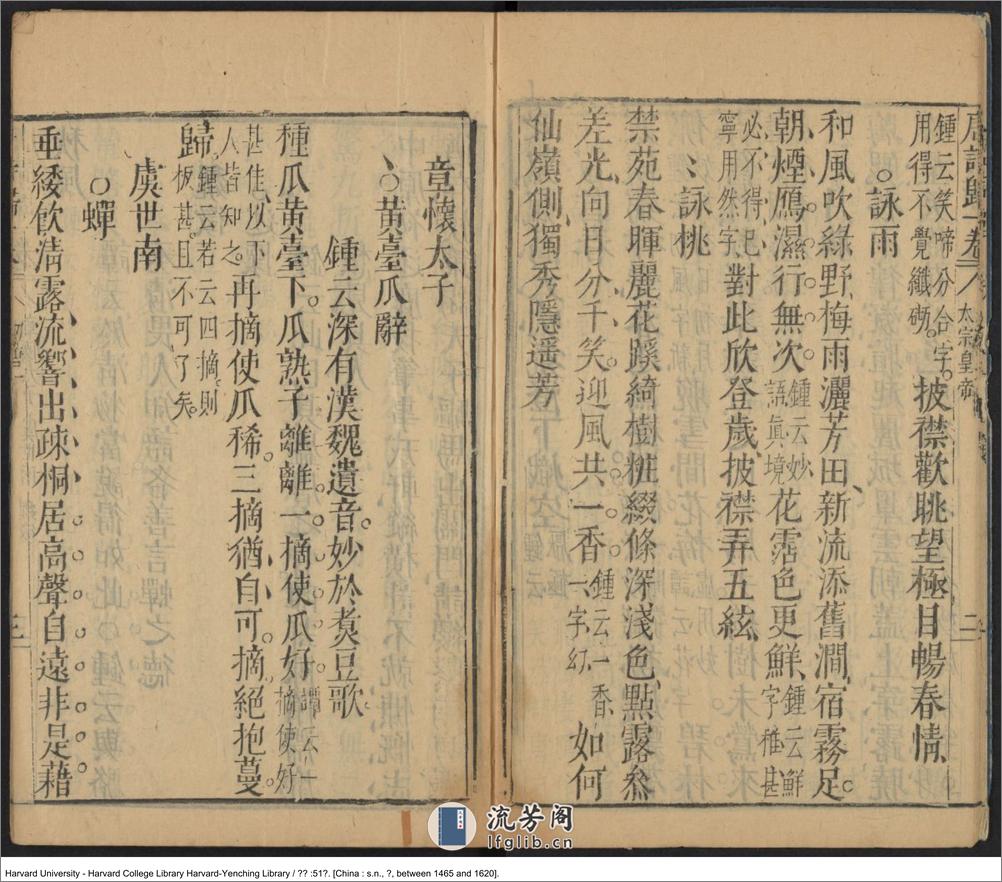 唐詩歸一卷 太宗皇帝 二
鍾云笑啼分合字
用得不覺纖砌 披襟歡眺望極目暢春情
○詠雨
和風吹綠野梅雨灑芳田新流添舊澗宿霧足
朝煙鴈濕行無次 鍾云妙語真境 花霑色更鮮 鍾云鮮字稚甚
必不得已
寧用然字 對此欣登歲披襟弄五絃
詠桃
禁苑春暉麗花蹊綺樹粧綴條深淺色點露參
差光向日分千笑迎風共一香 鍾云一香一字幻 如何
仙嶺側獨秀隱遥芳
章懷太子
○黃臺瓜辭
鍾云深有漢魏遺音妙於煮豆歌
種瓜黃臺下瓜熟子離離一摘使瓜好 譚云一摘使好
甚佳以下
人皆知之 再摘使瓜稀三摘猶自可摘絕抱蔓
歸 鍾云若云四摘則
板甚且不可了矣
虞世南
○蟬
垂緌飲清露流響出疎桐居高聲自遠非是藉
三
流芳阁
lfglib.cn
Harvard University - Harvard College Library Harvard-Yenching Library / ?? :51?. [China : s.n., ?, between 1465 and 1620].